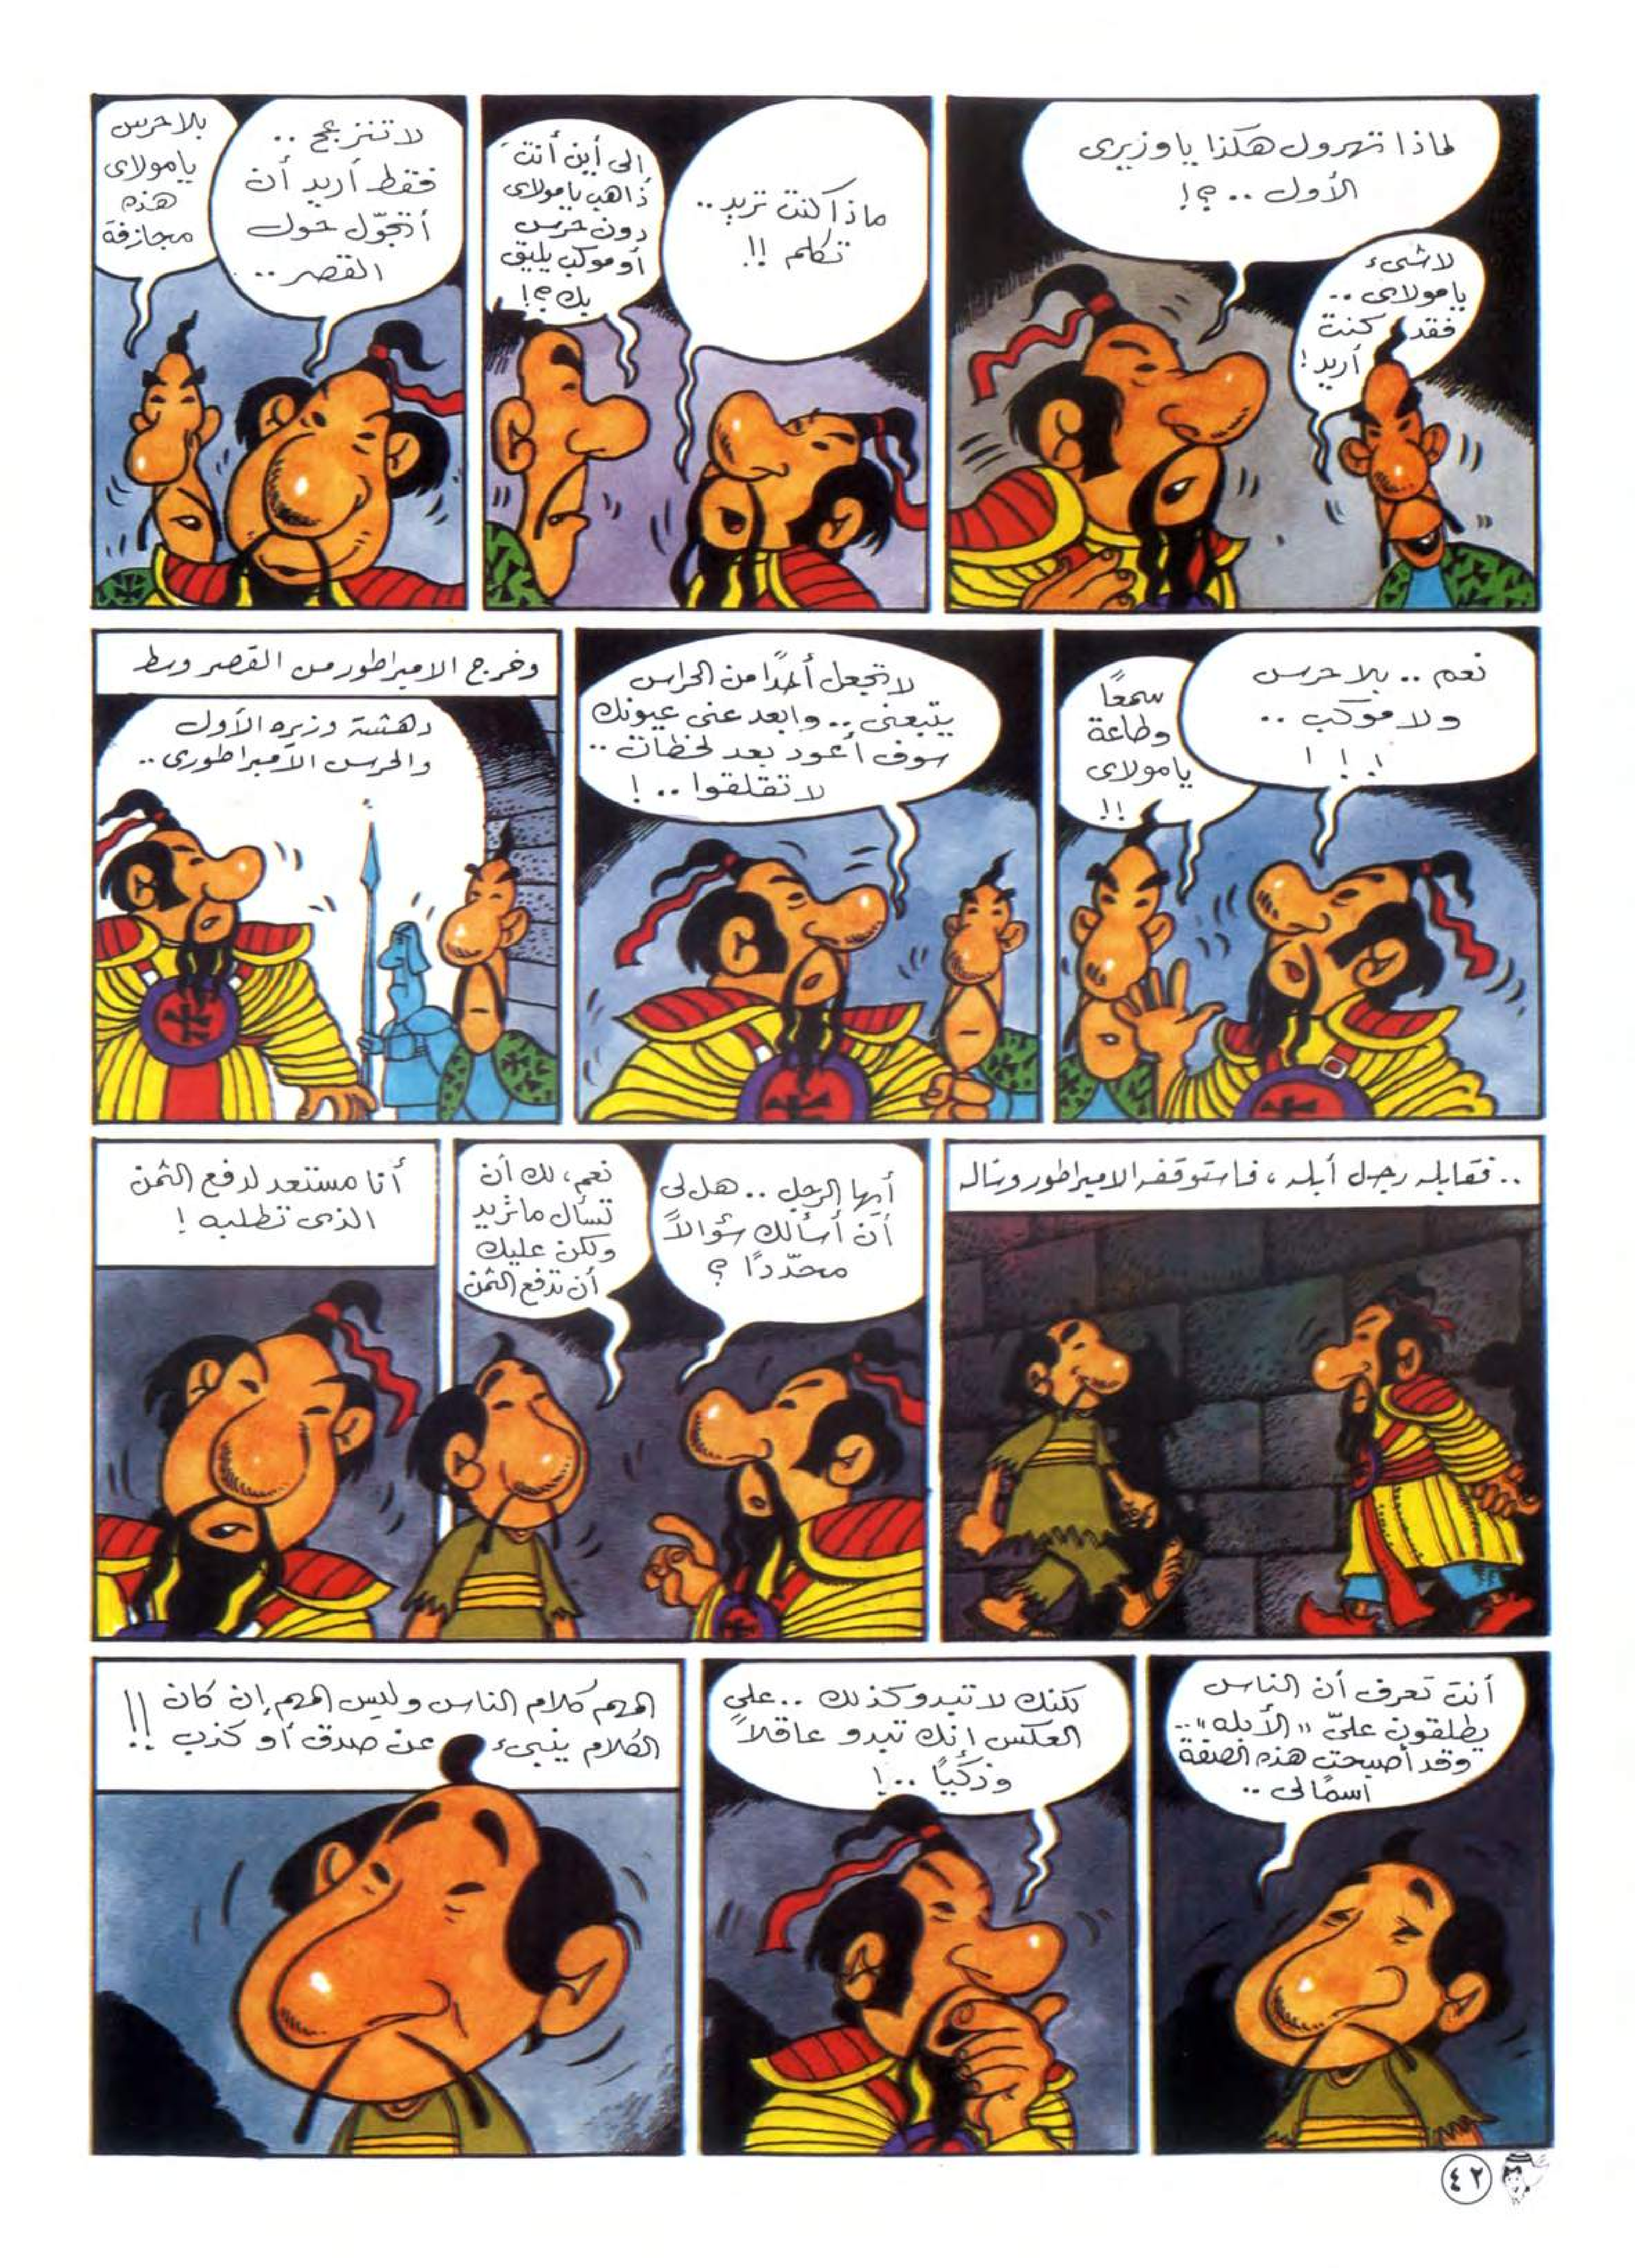 لماذا تهرول هكذا يا وزيرى
الأول .. ؟!
لا شىء
يا مولاى ..
فقد كنت
أريد !
ماذا كنت تريد ..
تكلم !!
إلى أين أنتَ
ذاهب يا مولاى
دون حرس
أو موكب يليق
بك ؟!
لا تنزعج ..
فقط أريد أن
أتجّول حول
القصر ..
بلا حرس
يا مولاى
هذه
مجازفة
نعم .. بلا حرس
ولا موكب ..
! ! !
سمعًا
وطاعة
يا مولاى
!!
لا تجعل أحدًا من الحراس
يتبعنى .. وابعد عنى عيونك
سوف أعود بعد لحظات ..
لا تقلقوا .. !
وخرج الامبراطور من القصر وسط
دهشة وزيره الأول
والحرس الامبراطورى ..
.. فقابله رجل أبله ، فاستوقفه الامبراطور وسأله
أيها الرجل .. هل لى
أن أسألك سؤالاً
محدّدًا ؟
نعم، لك أن
تسأل ما تريد
ولكن عليك
أن تدفع الثمن
أنا مستعد لدفع الثمن
الذى تطلبه !
أنت تعرف أن الناس
يطلقون علىّ "الأبله" ..
وقد أصبحت هذه الصفة
اسمًا لى ..
لكنك لا تبدو كذلك .. على
العكس إنك تبدو عاقلاً
وذكيًا .. !
المهم كلام الناس وليس المهم إن كان
الكلام ينبىء عن صدق أو كذب !!
٤٢